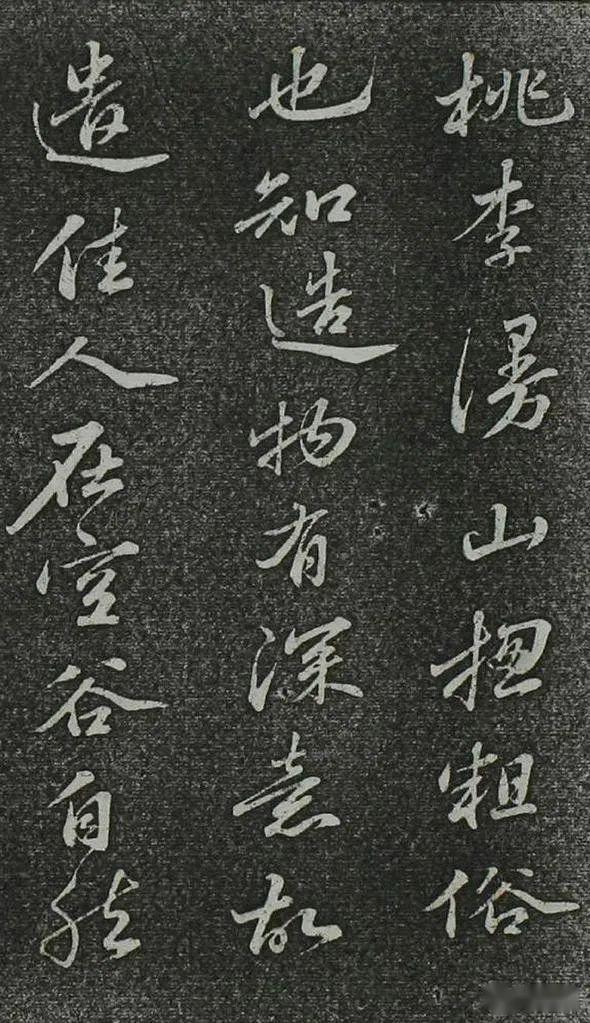 桃李漫山揔粗俗
也知造物有深意故
遣佳人在空谷自然